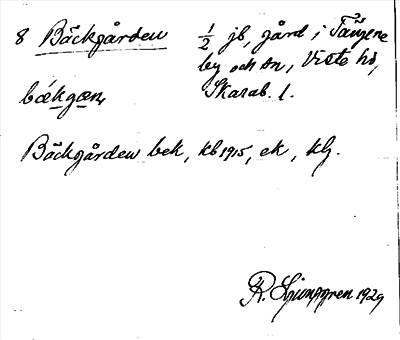 8 Bäckgården ½ jb, gård i Tängene
by och sn, Viste hd,
Skarab. l.
Bäckgården bek, kb 1915, ek, klj.
R. Ljunggren 1929